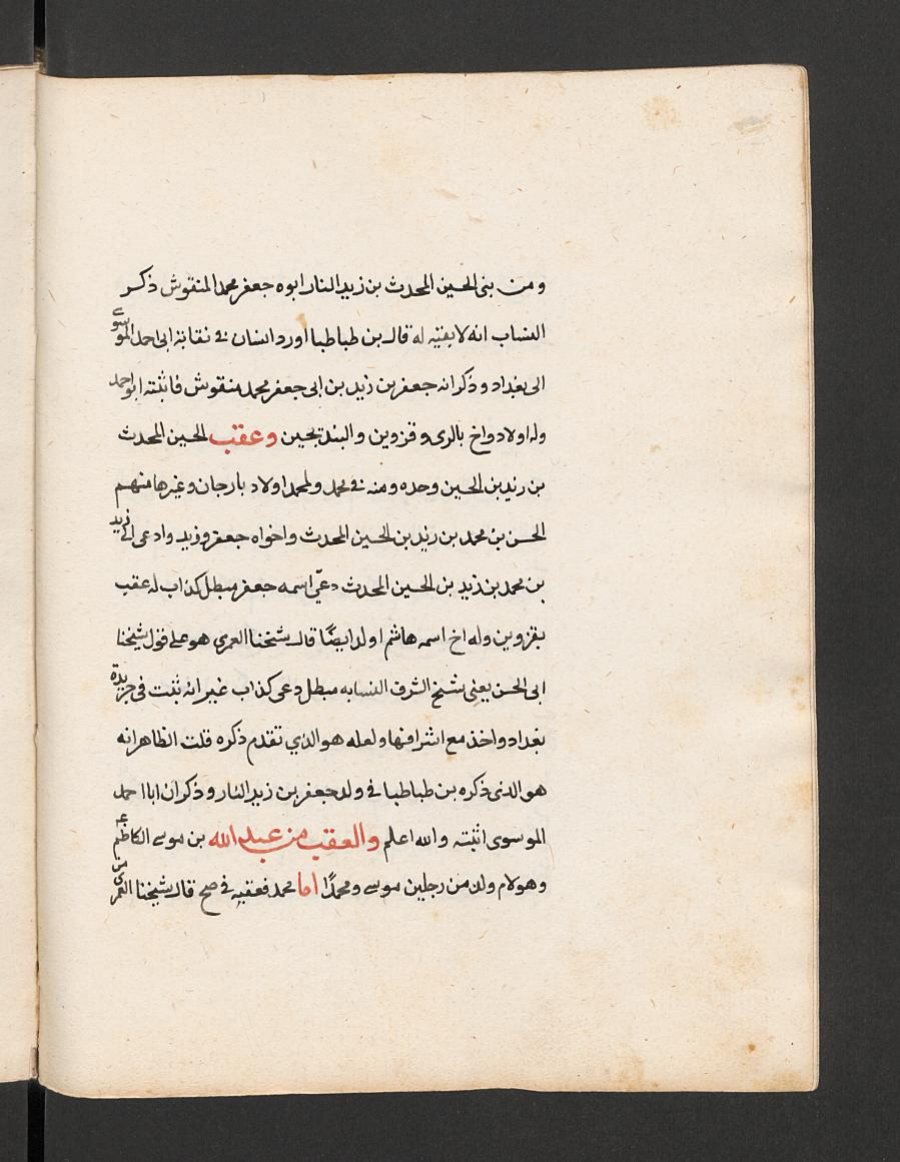 ومن بنى الحسين المحدث بن زيد النار ابوه جعفر محمد المنقوش ذكر
النساب انه لا بقيته له قال بن طباطبا اورد انسان فى نقابة ابى احمد الموسوى
الى بغداد وذكر انه جعفر بن زيد بن ابى جعفر محمد منقوش فاثبته ابو احمد
وله اولاد واخ بالرى وقزوين والبندتجين وعقب لحسين المحدث
من زيد بن الحسين وحده ومنه فى محمد ولمحمد اولاد بارجان وغيرها منهم
الحسن بن محمد بن زيد بن الحسين المحدث واخواه جعفر وزيد وادعى الى زيد
بن محمد بن زيد بن الحسين المحدث دعىّ اسمه جعفر مبطل كذاب له عقب
بقزوين وله اخ اسمه هاشم اولد ايضًا قال شيخنا العمرى هو على قول شيخنا
ابى الحسن يعنى شيخ الشرف النسابه مبطل دعى كذاب غير انه ثبت فى جريدة
بغداد واخذ مع اشرافها ولعله هو الذي تقدم ذكره قلت الظاهر انه
هو الذى ذكره بن طباطبا فى ولد جعفر بن زيد النار وذكر ان ابا احمد
الموسوى اثبته والله اعلم والعقب من عبد الله بن موسى الكاظم
وهو لام ولد من رجلين موسى ومحمدًا اما محمد فعقبه فى صح قال شيخنا العمرى